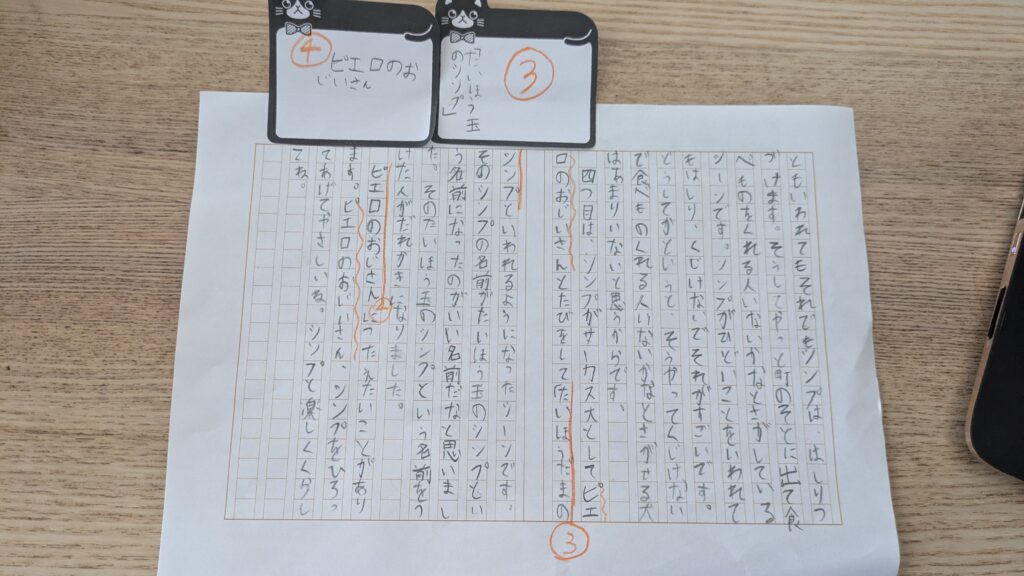 ④
ピエロのお
じいさん
③
「たいほう玉
のシンプ」
ともいわれてもそれでもシンプは、はしりつ
づけます。そうしてやっと町のそとに出て食
べものをくれる人いないかなとさがしている
シーンです。シンプがひどいことをいわれて
もはしり、くじけないでそれがすごいです。
どうしてかというと、そうやってくじけない
で食べものくれる人いないかなとさがせる犬
はあまりいないと思うからです。
四つ目は、シンプがサーカス犬としてピエ
ロのおじいさんとたびをして「たいほうだまの
シンプといわれるようになったシーンです。
そのシンプの名前がたいほう玉のシンプとい
う名前になったのがいい名前だなと思いまし
た。そのたいほう玉のシンプという名前をう
けた人がだれかきになりました。
ピエロのおじさんにつたえたいことがあり
ます。ピエロのおじいさん、シンプをひろっ
てあげてやさしいね。シンプと楽しくくらし
てね。
②
③